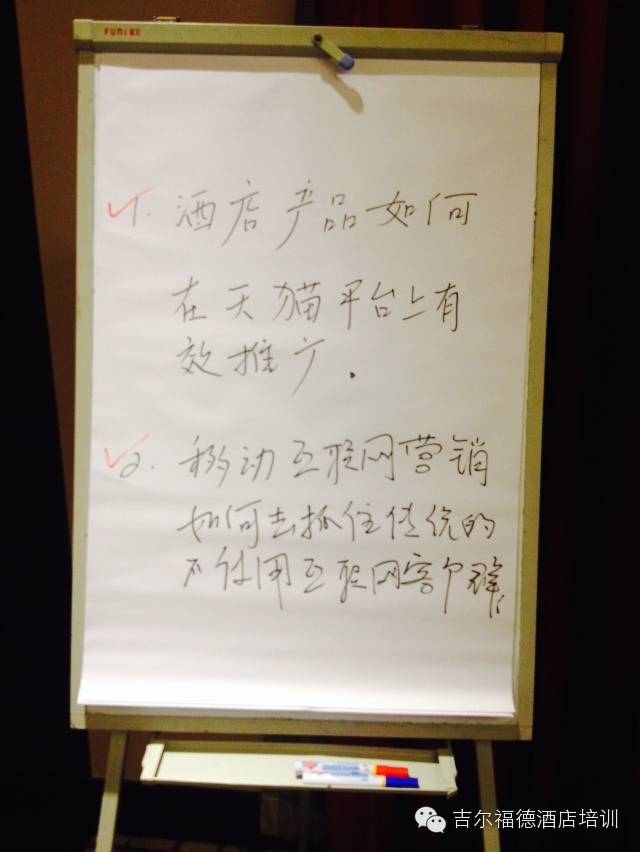 FUMI
1. 酒店产品如何
在天猫平台上有
效推广.
2. 移动互联网营销
如何去抓住传统的
不使用互联网客户群
吉尔福德酒店培训